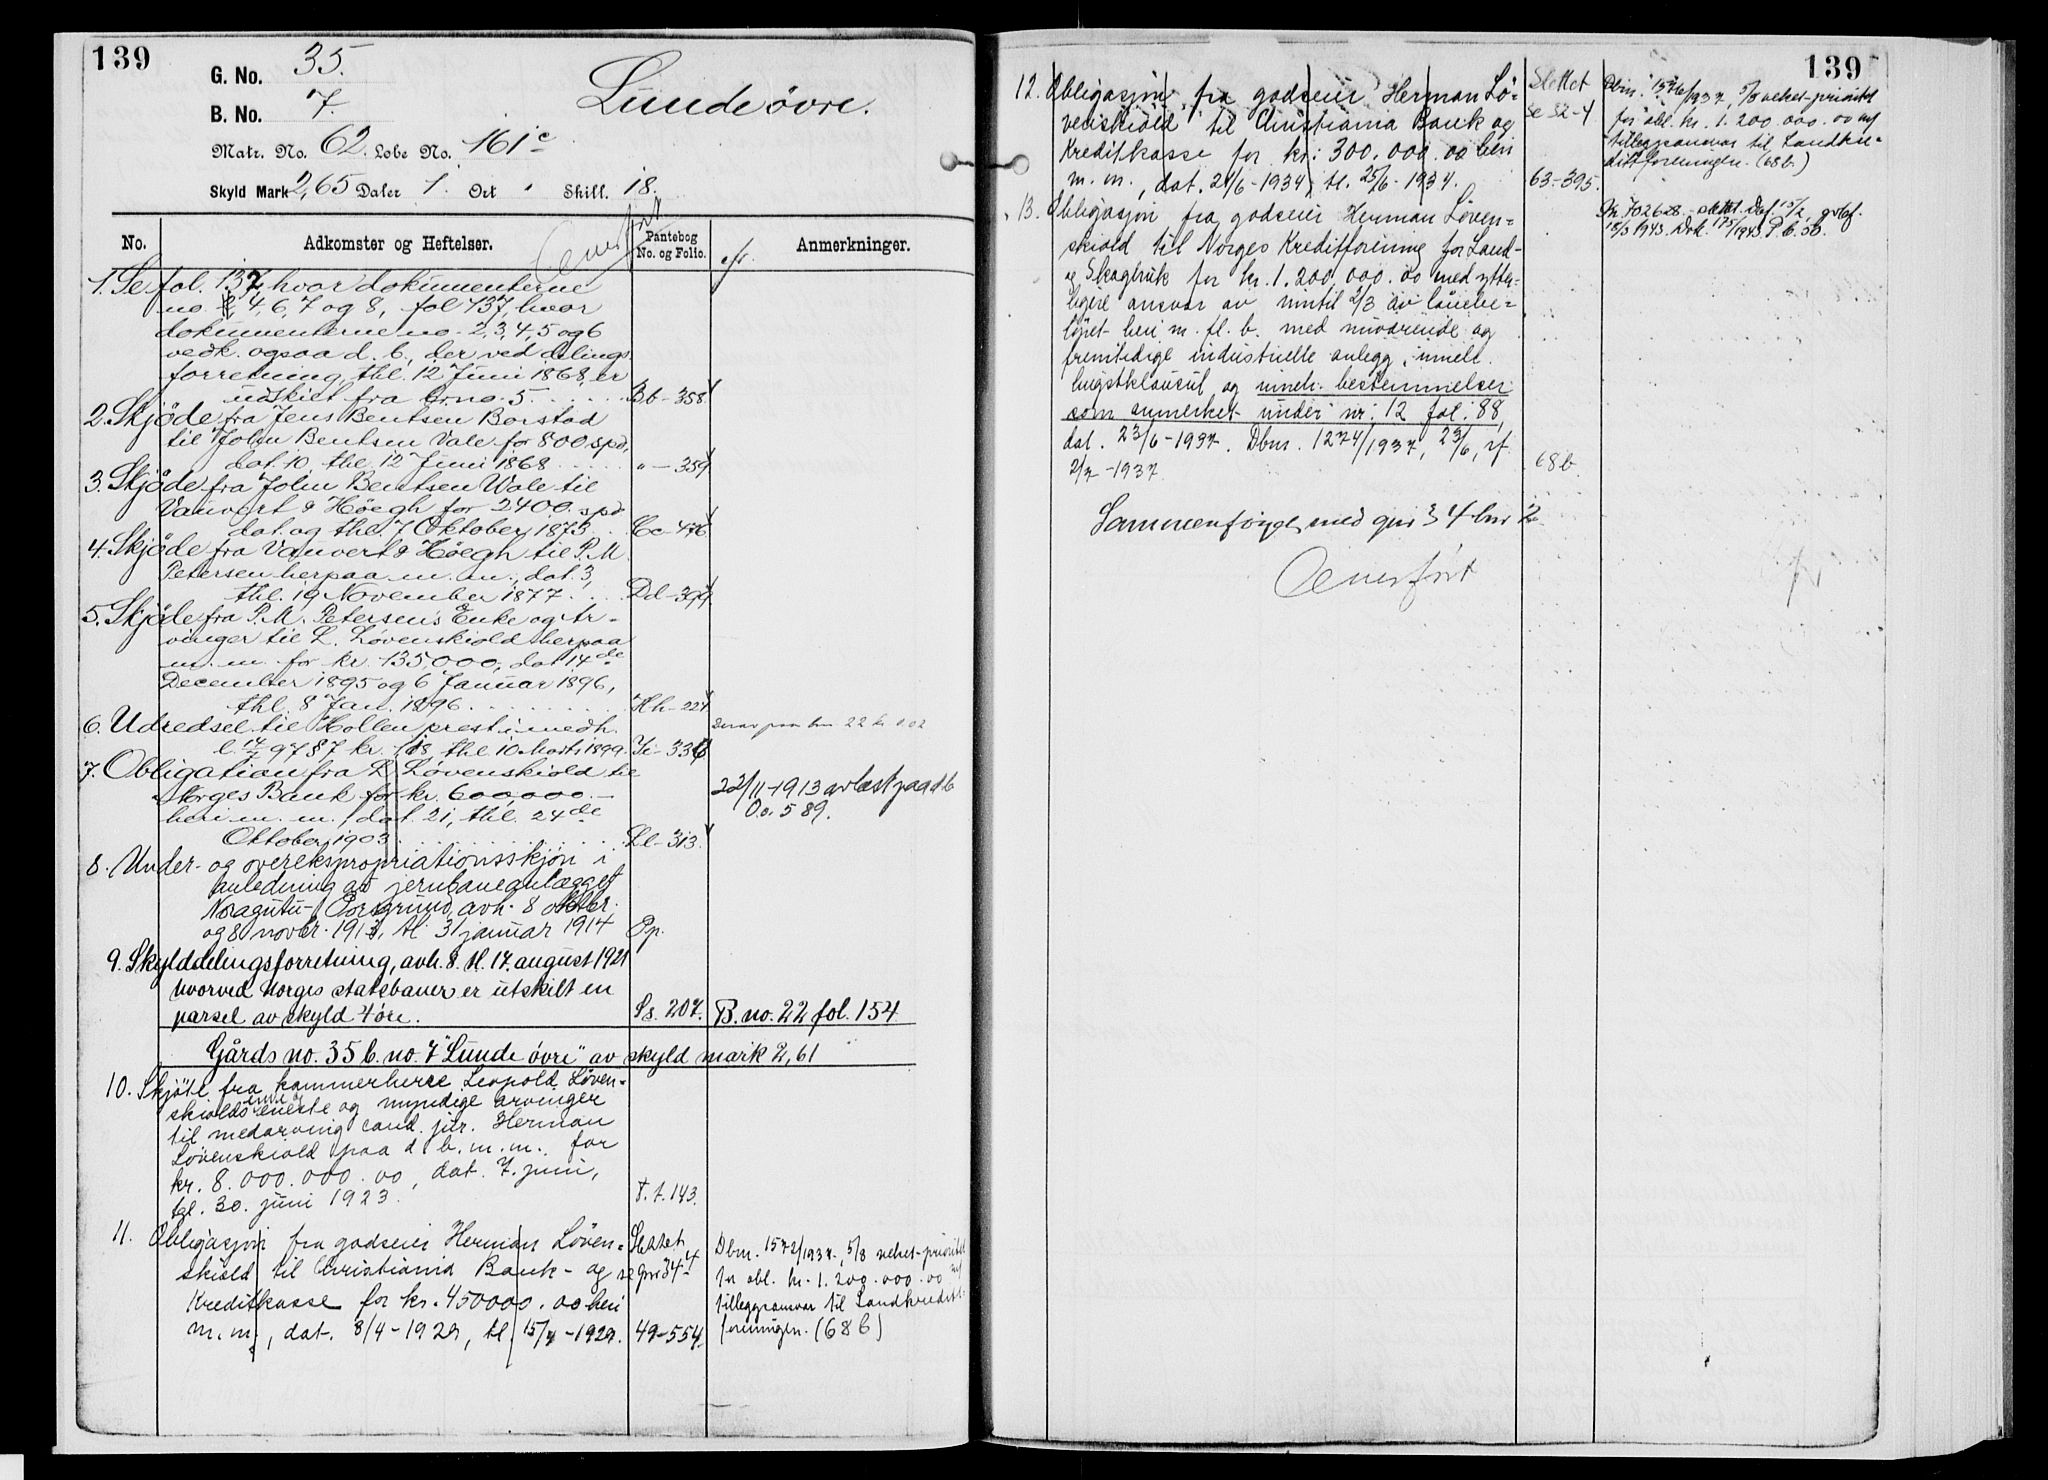 139
G. No. 35.
B. No. 7.
Lunde övre.
Matr. No. 62. Løbe No. 161c
Skyld Mark 2,65 Daler 1. Ort " Skill. 18.
No.
Adkomster og Heftelser.
Overført
Pantebog No. og Folio.
Anmerkninger.
1. Se fol. 137, hvor dokumenterne
no. 4, 6, 7 og 8, fol 137, hvor
dokumenterne no. 2, 3, 4, 5 og 6
vedk. ogsaa d. b., der ved delings
forretning, thl. 12 Juni 1868, er
udskiet fra brno. 5. Bb-358
2. Skjöde fra Jens Bentsen Borstad
til John Bentsen Vale for 800 spd,
dat. 10, thl. 12 Juni 1868 " - 359
3. Skjöde fra John Bentsen Wale til
Vauvert & Höegh for 2400 spd
dat. og thl. 7 Oktober 1873. Cc-476
4. Skjöde fra Vauvert & Höegh til P. M.
Petersen herpaa m. m., dat. 3,
thl. 19 November 1877. Dd-394
5. Skjöde fra P. M. Petersens Enke og Ar-
vinger til L. Løvenskiold herpaa
m. m. for kr. 135,000, dat 14de
December 1895 og 6 Januar 1896,
thl. 8 Jan. 1896 Hh-224
6. Udredsel til Hollen prest i medh.
l. 14/7 97 87 kr. /18 thl 10 Marts 1899. Ii-336
Derav paa bn 22 kr 0.02
7. Obligation fra L. Løvenskiold til
Norges Bank for kr. 600,000.-
heri m. m., dat. 21, thl. 24de
Oktober 1903 Ll-313.
22/11-1913 avlæst paa d b
Oo. 589.
8. Under- og overekspropriationsskjön i
anledning av jernbaneanlægget
Nragutu-Porsgrund, avh. 8 oktbr.
og 8 novbr. 1913, tl. 31 januar 1914 Pp.
9. Skylddelingsforretning, avh. 8. tl. 17. august 1921
hvorved Norges statsbaner er utskilt en
parsel av skyld 4 øre. Ss. 207. B. no. 22 fol. 154
Gårds no. 35 b. no. 7 "Lunde övre" av skyld mark 2,61
10. Skjöte fra kammerherre Leopold Löven-
skiolds eneste og myndige arvinger
til medarving cand. jur. Herman
Lövenskiold paa d. b. m. m. for
kr. 8.000.000.00, dat. 7. juni,
tgl. 30. juni 1923. T. t. 143.
11. Obligasjon fra godseier Herman Löven-
skiold til Christiania Bank- og
Kreditkasse for kr. 450000.00 heri
m. m., dat. 8/4-1929, tl 15/4-1929. 49-554.
Slettet
se gnr 34-4
Dbnr. 1572/1937, 5/8 veket prioritet
for obl. kr. 1.200.000.00 m/
tilleggsansvar til Landkreditt-
foreningen. (68b)
139
12. Obligasjon fra godseier Herman Lö-
venskiold til Christiania Bank og
Kreditkasse for kr. 300.000.00 heri
m. m., dat. 21/6-1934, tl. 25/6-1934. 63-395.
Slettet
se 32-4
Dbnr. 1576/1937, 5/8 veket prioritet
for obl. kr. 1.200.000.00 m/
tilleggsansvar til Landkre-
dittforeningen. (68b.)
13. Obligasjon fra godseier Herman Löven-
skiold til Norges Kreditforening for Land-
og Skogbruk for kr. 1.200.000.00 med ytter-
ligere ansvar av inntil 2/3 av lånebe-
löpet heri m. fl. b. med nuværende og
fremtidige industrielle anlegg, inneh.
lugstklausul og inneh. bestemmelser
som anmerket under nr. 12 fol. 88,
dat. 23/6-1937. Dbnr. 1274/1937, 23/6, rf.
2/7-1937 68b.
Sammenföyet med gnr 34 bnr 2
Overført